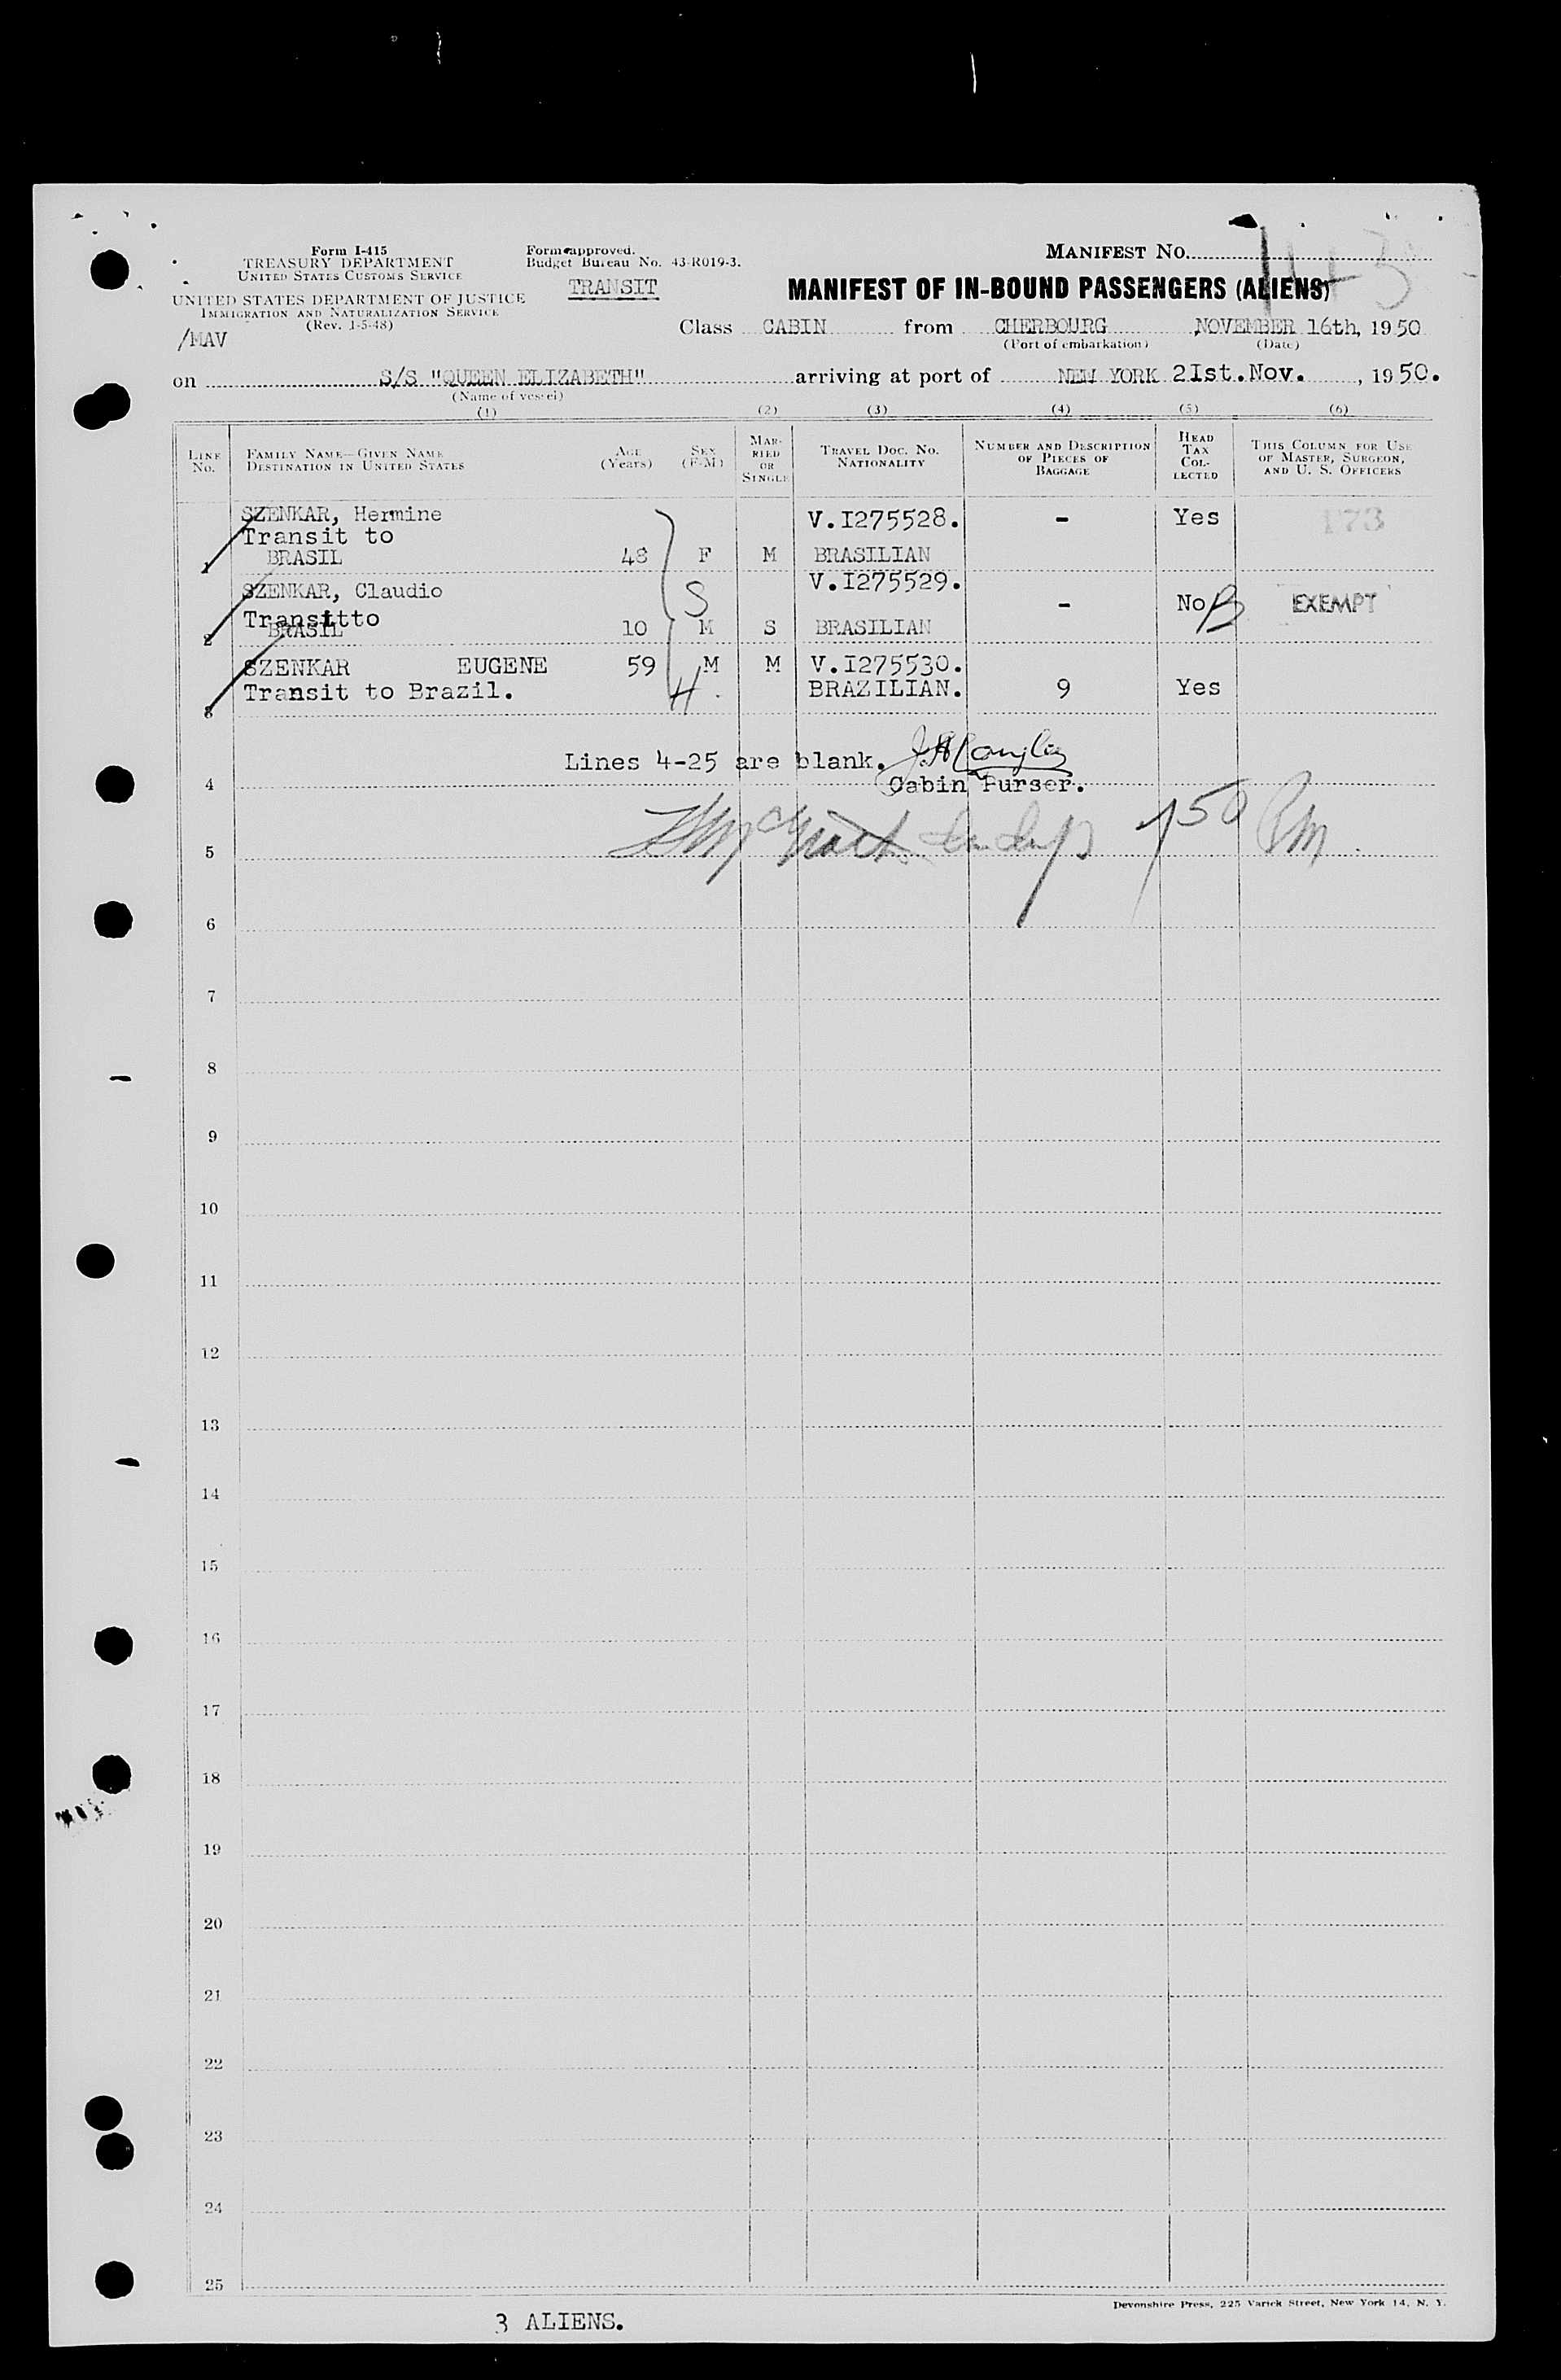 Form I-415
TREASURY DEPARTMENT
UNITED STATES CUSTOMS SERVICE
UNITED STATES DEPARTMENT OF JUSTICE
IMMIGRATION AND NATURALIZATION SERVICE
(Rev. 1-5-48)
/MAV
Form approved.
Budget Bureau No. 43-R019-3.
TRANSIT
MANIFEST No. 143
MANIFEST OF IN-BOUND PASSENGERS (ALIENS)
Class CABIN from CHERBOURG NOVEMBER 16th, 1950
(Port of embarkation) (Date)
on S/S "QUEEN ELIZABETH" arriving at port of NEW YORK 2Ist.Nov., 1950.
(Name of vessel)
(1) (2) (3) (4) (5) (6)
LINE No. FAMILY NAME—GIVEN NAME DESTINATION IN UNITED STATES AGE (Years) SEX (F-M) MARRIED OR SINGLE TRAVEL DOC. NO. NATIONALITY NUMBER AND DESCRIPTION OF PIECES OF BAGGAGE HEAD TAX COLLECTED THIS COLUMN FOR USE OF MASTER, SURGEON, AND U. S. OFFICERS
SZENKAR, Hermine V.I275528. - Yes 173
Transit to
1 BRASIL 48 F M BRASILIAN
SZENKAR, Claudio V.I275529.
S - No B EXEMPT
Transitto
2 BRASIL 10 M S BRASILIAN
SZENKAR EUGENE 59 M M V.I275530.
3 Transit to Brazil. H. BRAZILIAN. 9 Yes
Lines 4-25 are blank.
4 Cabin Purser.
5 750 PM
6
7
8
9
10
11
12
13
14
15
16
17
18
19
20
21
22
23
24
25
Devonshire Press, 225 Varick Street, New York 14, N. Y.
3 ALIENS.